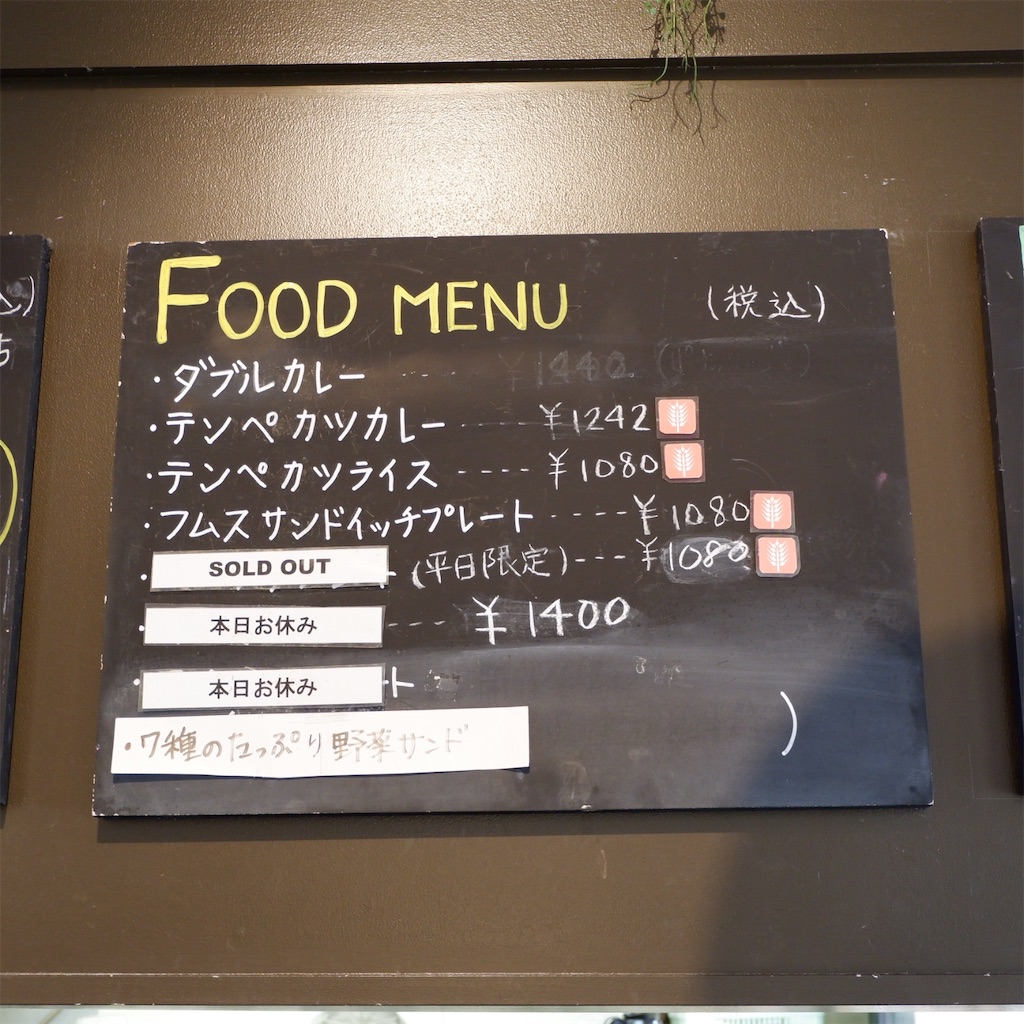 FOOD MENU (税込)
・ダブルカレー ----
・テンペカツカレー ------ ¥1242
・テンペカツライス ---- ¥1080
・フムスサンドイッチプレート ----- ¥1080
・SOLD OUT (平日限定)--- ¥1080
・本日お休み --- ¥1400
・本日お休み ト
・7種のたっぷり野菜サンド )